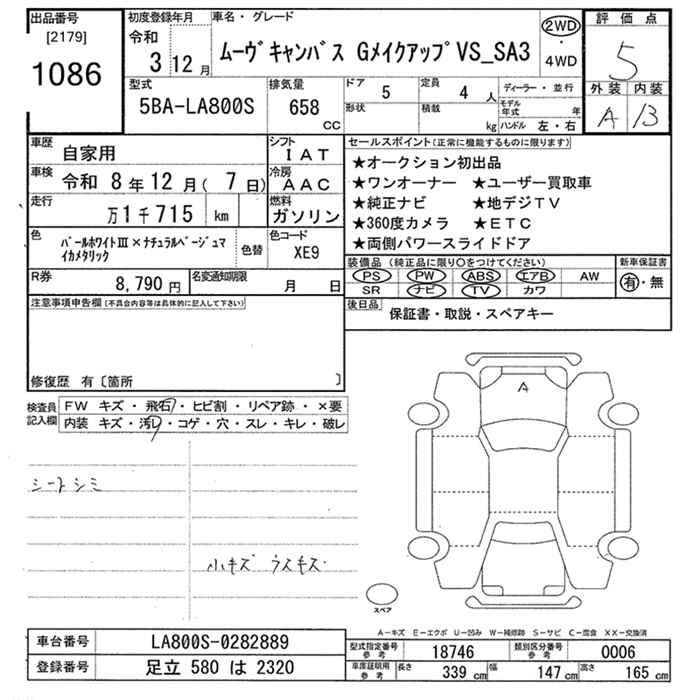 出品番号
[2179]
1086
初度登録年月
令和
3 12 月
車名・グレード
ムーヴキャンバス GメイクアップVS_SA3
2WD
・
4WD
評価点
5
外装 内装
A B
型式
5BA-LA800S
排気量
658
cc
ドア 5
定員 4 人
ディーラー・並行
形状
積載 kg
モデル年式 年
ハンドル 左・右
車歴 自家用
シフト IAT
車検 令和 8年12月(7日)
冷房 AAC
走行 万1千715 km
燃料 ガソリン
色 パールホワイトⅢ×ナチュラルベージュマイカメタリック
色替
色コード XE9
R券 8,790円
名変通知期限 月 日
セールスポイント(正常に機能するものに限ります)
★オークション初出品
★ワンオーナー ★ユーザー買取車
★純正ナビ ★地デジTV
★360度カメラ ★ETC
★両側パワースライドドア
装備品 (純正品に限り○をつけてください)
新車保証書
PS PW ABS エアB AW
有・無
SR ナビ TV カワ
後日品 保証書・取説・スペアキー
注意事項申告欄(不具合内容等は具体的に記入して下さい)
修復歴 有〔箇所 〕
検査員記入欄
FW キズ・飛石・ヒビ割・リペア跡・×要
内装 キズ・汚レ・コゲ・穴・スレ・キレ・破レ
シートシミ
小キズ ウスキズ
A
スペア
A-キズ E-エクボ U-凹み W-補修跡 S-サビ C-腐食 XX-交換済
車台番号 LA800S-0282889
登録番号 足立 580 は 2320
型式指定番号参考 18746
類別区分番号参考 0006
車庫証明用参考 長さ 339 cm 幅 147 cm 高さ 165 cm